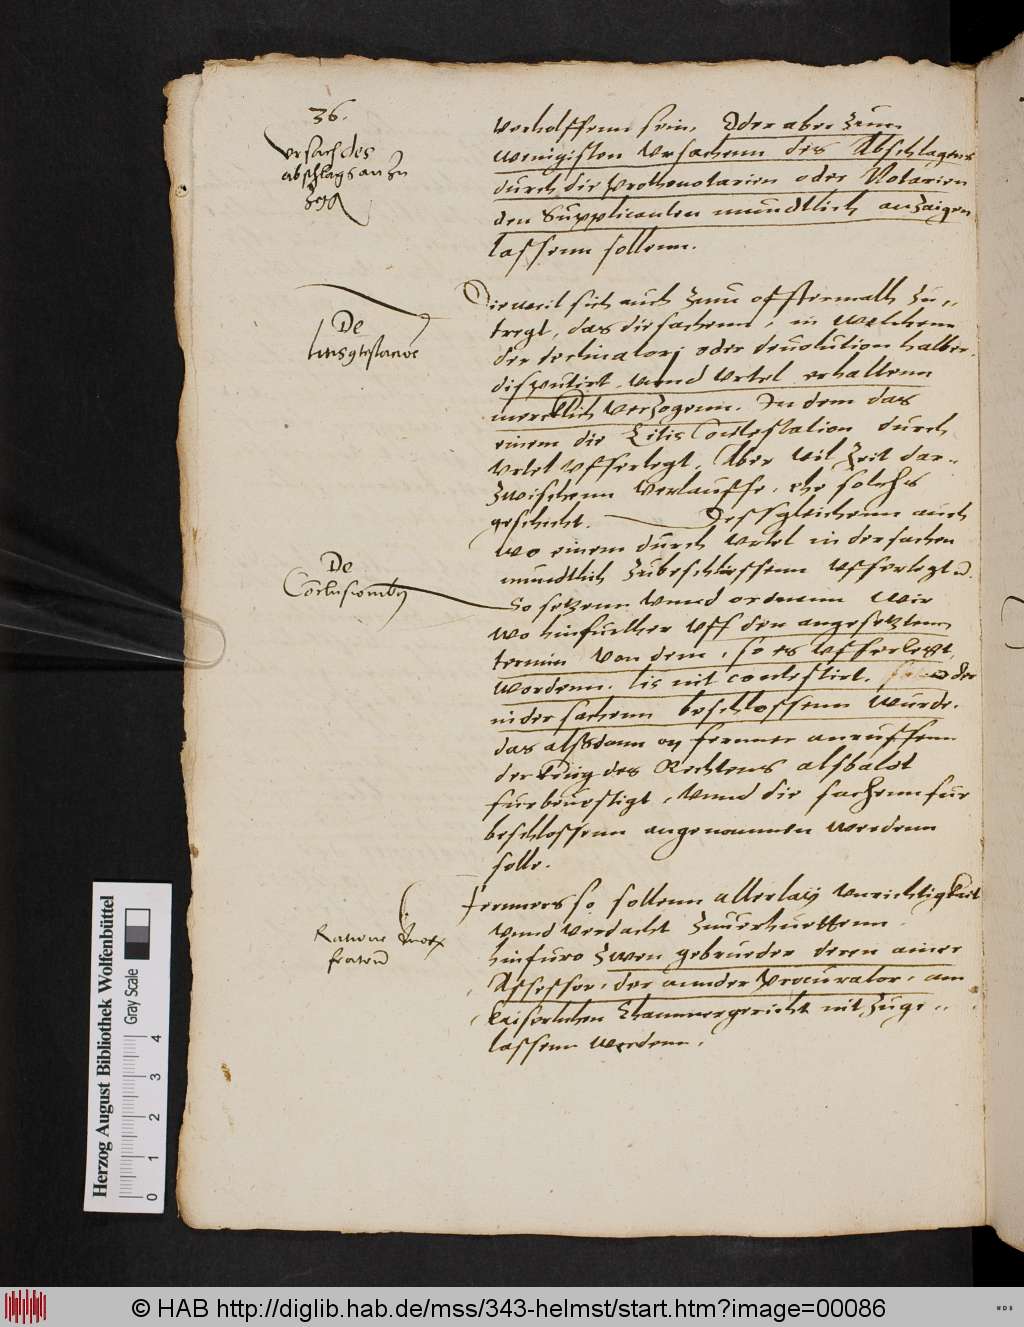 36.
vrsach des
abschlags an zu
verhoffenn sein, Oder aber zum
wenigisten vrsachenn des Abschlagens
durch die Prothonotarien oder Notarien
den Supplicanten mundtlich anzaigen
lassenn sollenn.
De
litis
Dieweil sich auch zum offtermalh zu„
tregt, das die sachenn, in welchenn
der declinatorj oder deuolution halber,
disputirt, vnnd vrtel erhaltenn
mercklich verzogenn. In dem das
einem die Litis Contestation durch
vrtel vfferlegt. Aber vil Zeit dar„
zwischenn verlauffe, ehe solchs
geschicht. Dessgleichenn auch
wo einem durch vrtel in der sachen
mundtlich zubeschliessenn vfferlegt
De
So setzenn vnnd ordnenn Wir
wo hinfurther vff den angesetztenn
termin von dem, so es vfferlegt
wordenn, lis nit contestirt, oder
in der sachenn beschlossenn wurde.
das alssdann on ferrner anruffenn
der krieg des Rechtens alsbaldt
fur beuestigt, vnnd die sachenn fur
beschlossenn angenommen werdenn
solle.
Ferrners so sollenn allerlay vnrichtigkeit
vnnd verdacht zuuerhuettenn
hinfuro zwen gebrueder deren ainer
Assessor, der annder Procurator, am
kaiserlichen Chammergericht nit zuge„
lassenn werdenn.
Ratione
Herzog August Bibliothek Wolfenbüttel
Gray Scale
0 1 2 3 4
© HAB http://diglib.hab.de/mss/343-helmst/start.htm?image=00086